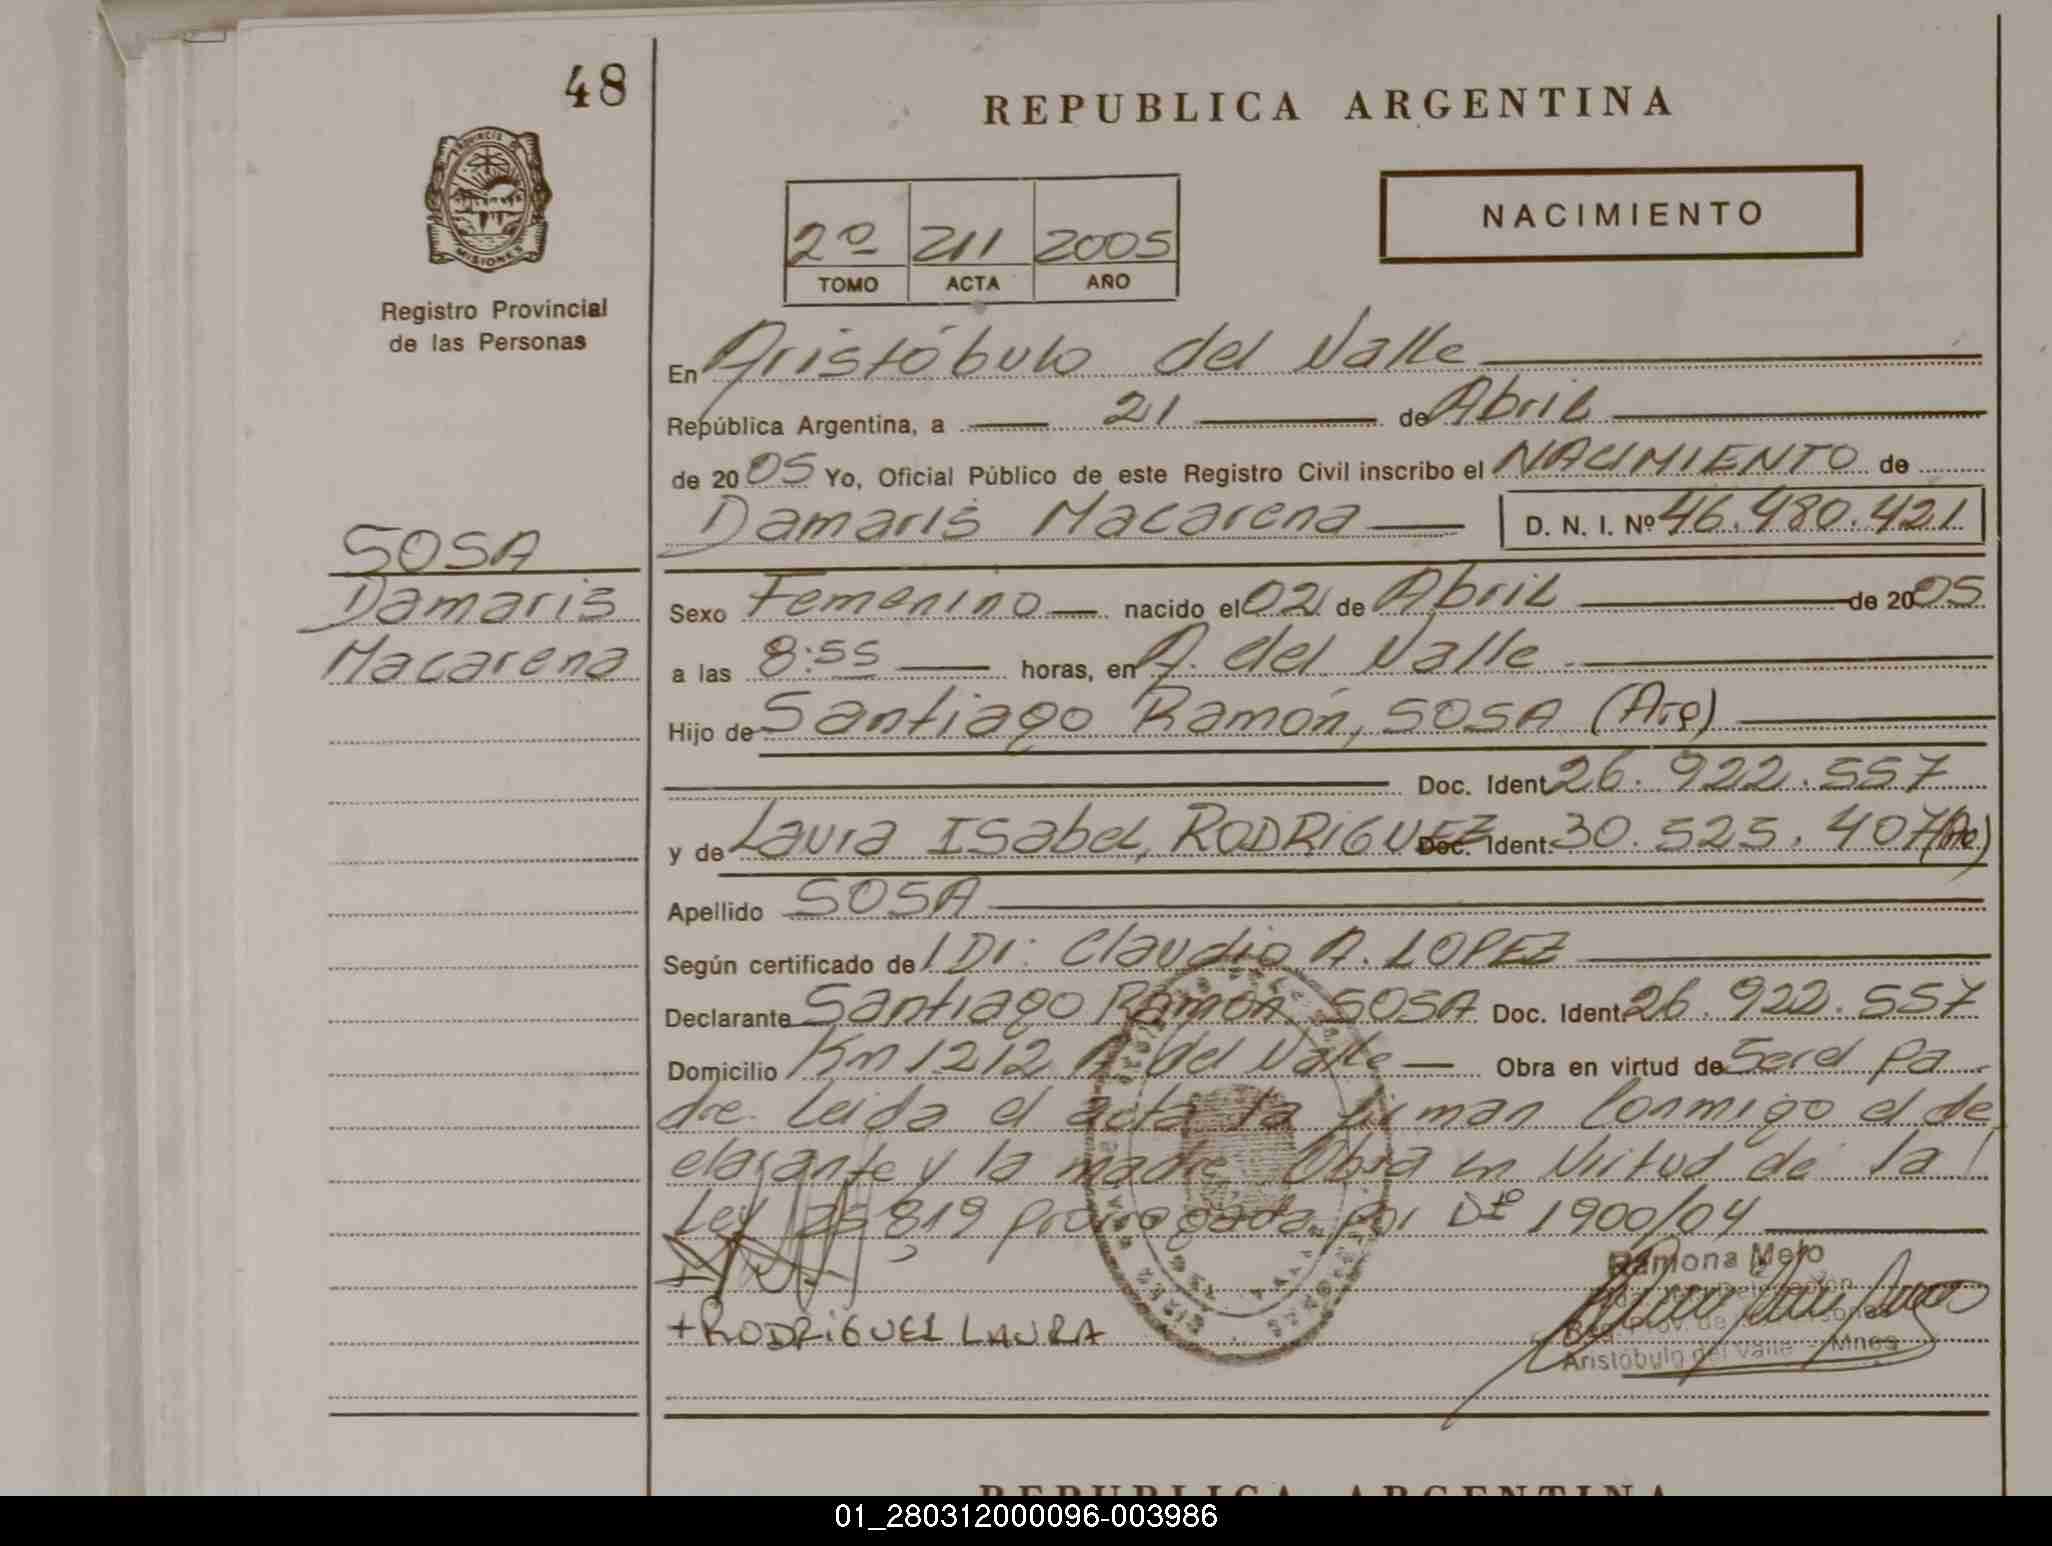 48
REPUBLICA ARGENTINA
PROVINCIA DE
MISIONES
Registro Provincial
de las Personas
2º 211 2005
TOMO ACTA AÑO
NACIMIENTO
En Aristóbulo del Valle
República Argentina, a 21 de Abril
de 2005 Yo, Oficial Público de este Registro Civil inscribo el NACIMIENTO de
Damaris Macarena D. N. I. Nº 46.480.421
SOSA
Damaris
Macarena
Sexo Femenino nacido el 02 de Abril de 2005
a las 8:55 horas, en A. del Valle
Hijo de Santiago Ramón, SOSA (Arg)
Doc. Ident. 26.922.557
y de Laura Isabel, RODRIGUEZ Doc. Ident. 30.525.407 (Arg)
Apellido SOSA
Según certificado de Dr: Claudio A. LOPEZ
Declarante Santiago Ramón SOSA Doc. Ident. 26.922.557
Domicilio Km 1212 A. del Valle Obra en virtud de Ser el pa
dre. Leida el acta la firman Conmigo el de
clarante y la madre. Obra en Virtud de la
Ley 25.819 prorrogada por Dto 1900/04
+RODRIGUEZ LAURA
Ramona Melo
Aristóbulo del Valle - Mnes
REPUBLICA ARGENTINA
01_280312000096-003986